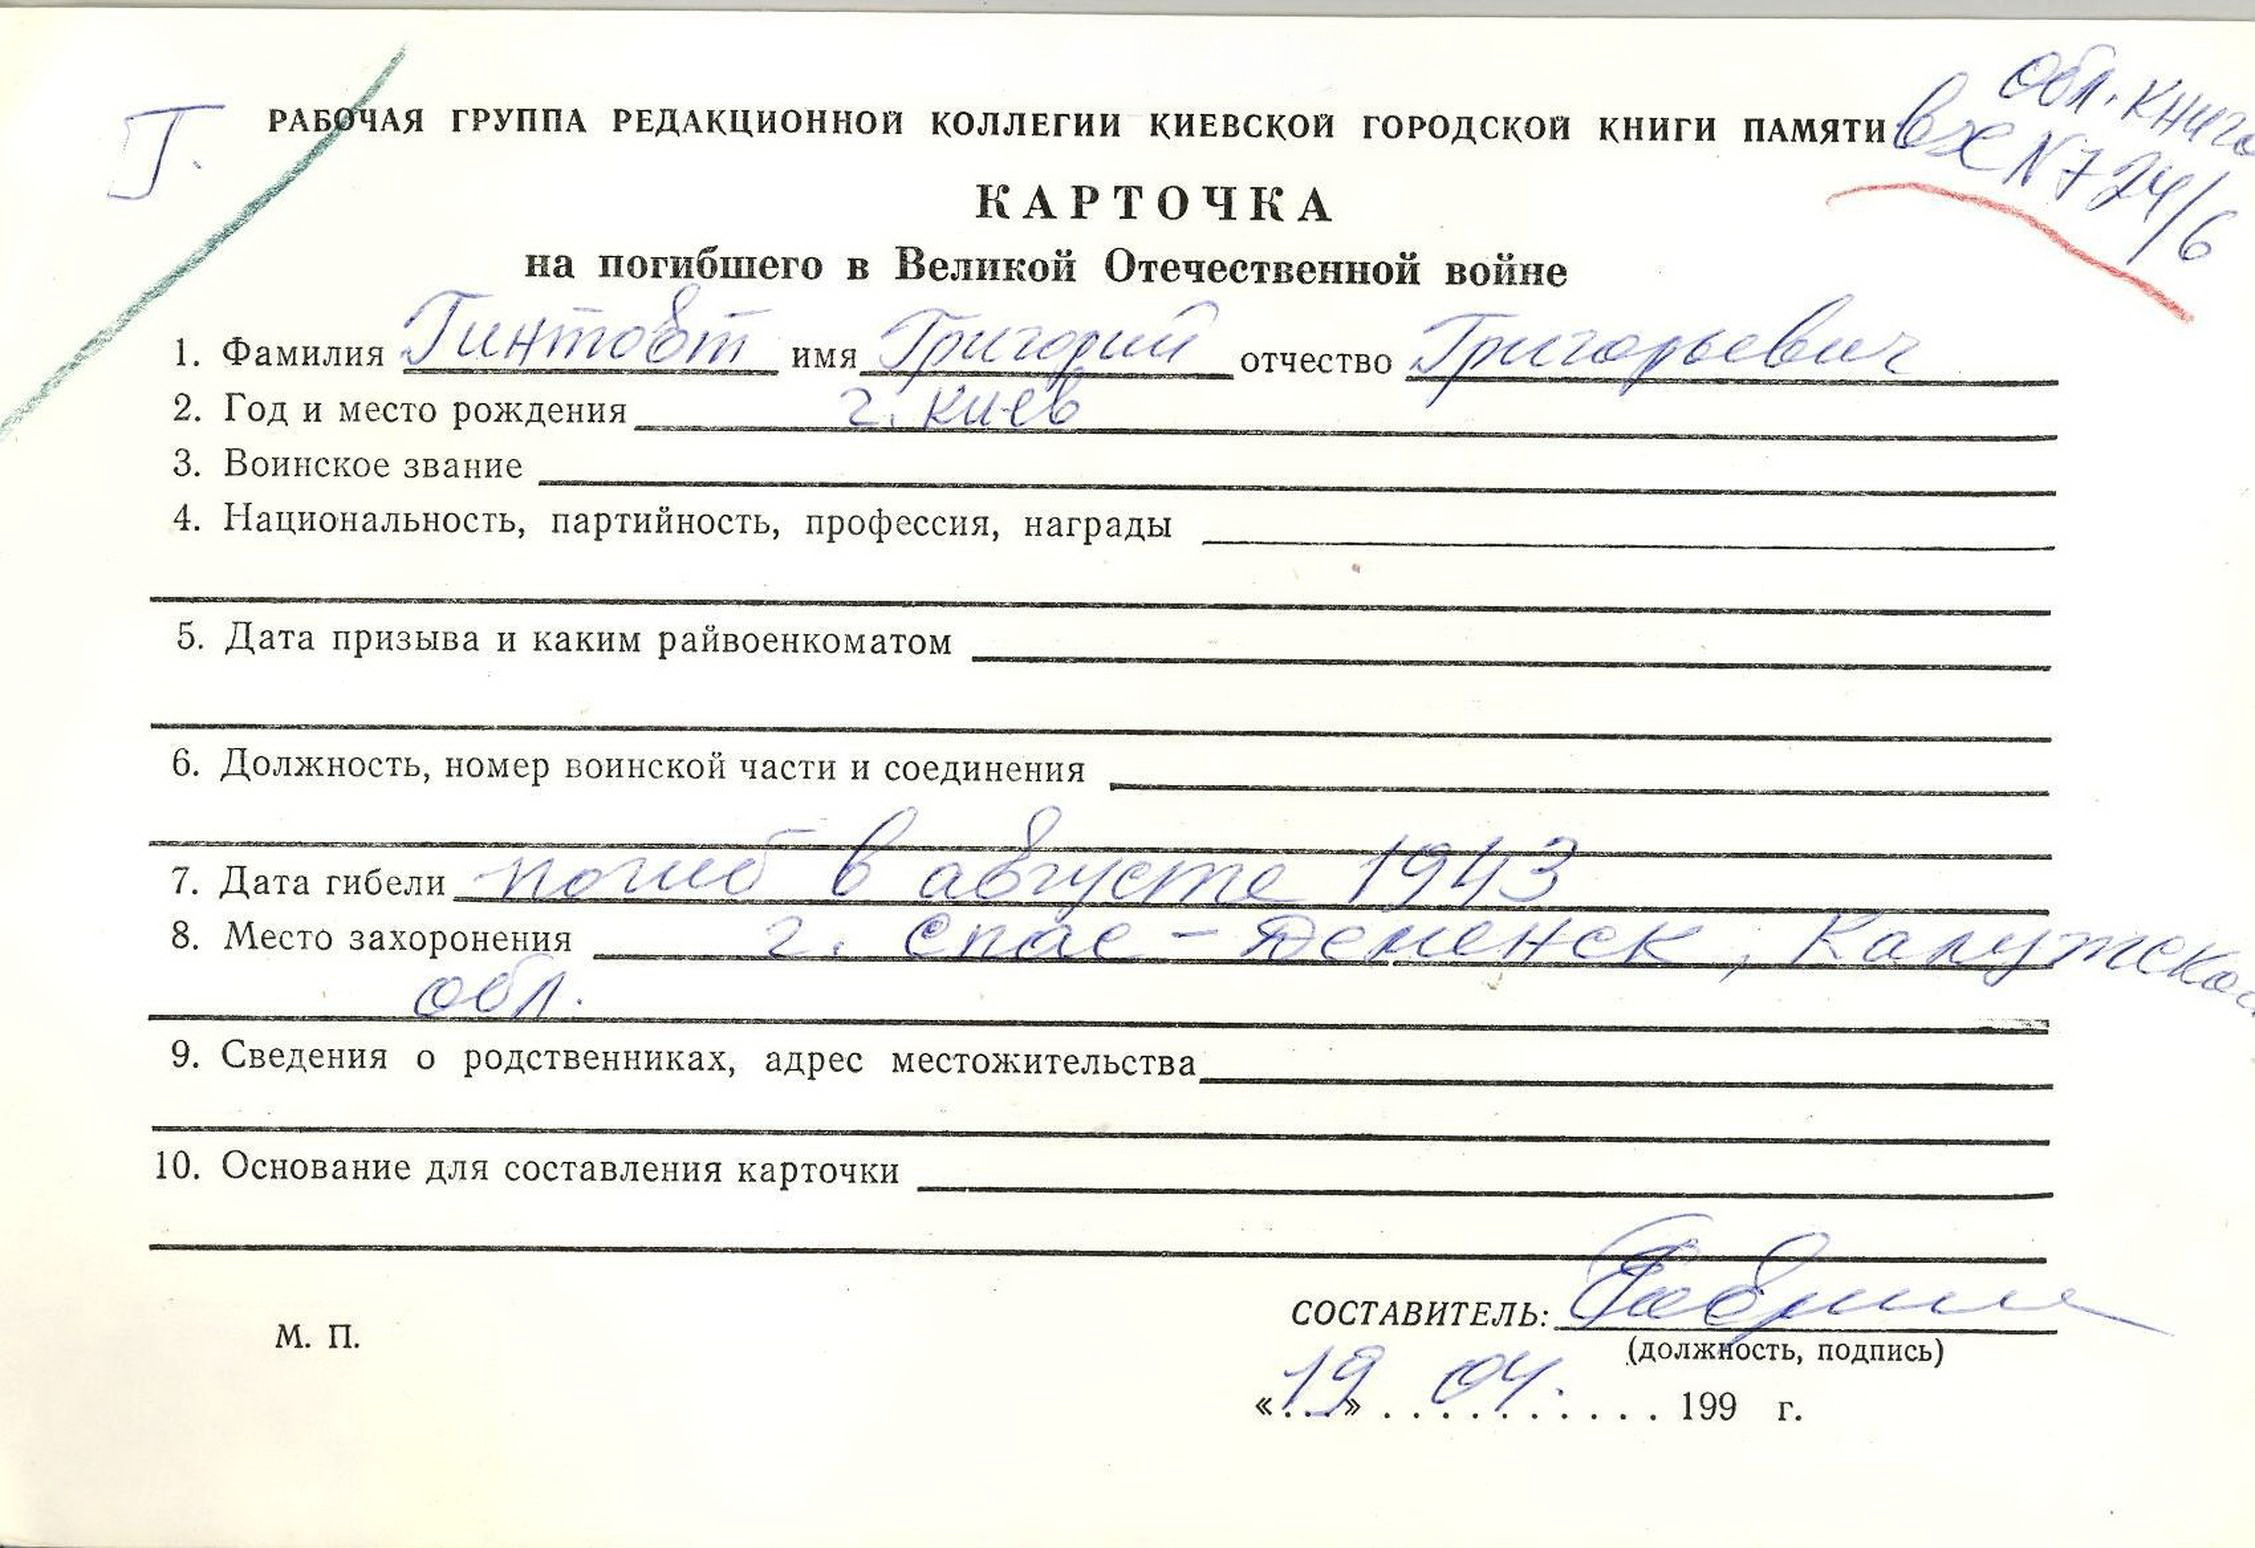 Г.
обл. книга
вх N 724/6
РАБОЧАЯ ГРУППА РЕДАКЦИОННОЙ КОЛЛЕГИИ КИЕВСКОЙ ГОРОДСКОЙ КНИГИ ПАМЯТИ
КАРТОЧКА
на погибшего в Великой Отечественной войне
1. Фамилия Гинтовт имя Григорий отчество Григорьевич
2. Год и место рождения г. Киев
3. Воинское звание
4. Национальность, партийность, профессия, награды
5. Дата призыва и каким райвоенкоматом
6. Должность, номер воинской части и соединения
7. Дата гибели погиб в августе 1943
8. Место захоронения г. Спас-Деменск, Калужской
обл.
9. Сведения о родственниках, адрес местожительства
10. Основание для составления карточки
М. П.
СОСТАВИТЕЛЬ:
(должность, подпись)
«19» 04. 199 г.